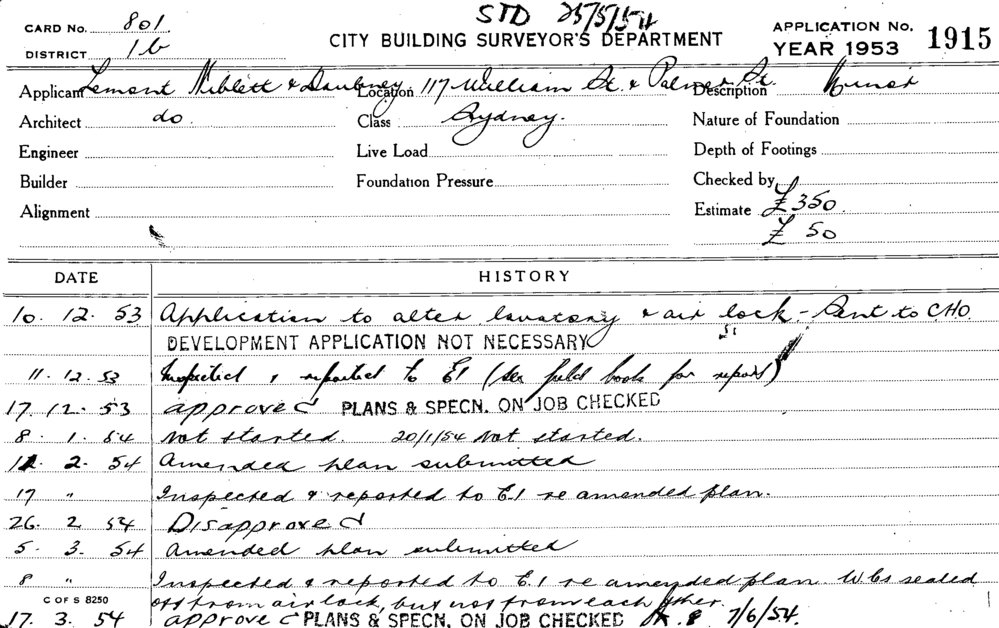 STD 25/5/54
CARD No. 801
DISTRICT 1b
CITY BUILDING SURVEYOR'S DEPARTMENT
APPLICATION No.
YEAR 1953 1915
Applicant Lemont Niblett & Daubney Location 117 William St. & Palmer St. Description Minor
Architect do Class Sydney. Nature of Foundation
Engineer Live Load Depth of Footings
Builder Foundation Pressure Checked by
Alignment Estimate £350.
£ 50
DATE HISTORY
10. 12. 53 Application to alter lavatory & air lock - Sent to CHO.
DEVELOPMENT APPLICATION NOT NECESSARY
11. 12. 53 Inspected & reported to E1 (see field book for report)
17. 12. 53 approved PLANS & SPECN. ON JOB CHECKED
8. 1. 54 Not started. 20/1/54 Not started.
2. 54 Amended plan submitted
17 " Inspected & reported to E.1 re amended plan.
26. 2 54 Disapproved
5. 3. 54 Amended plan submitted
8 " Inspected & reported to E.1 re amended plan. W.Cs sealed
C OF S 8250 off from air lock, but not from each other.
17. 3. 54 approved PLANS & SPECN. ON JOB CHECKED 7/6/54.